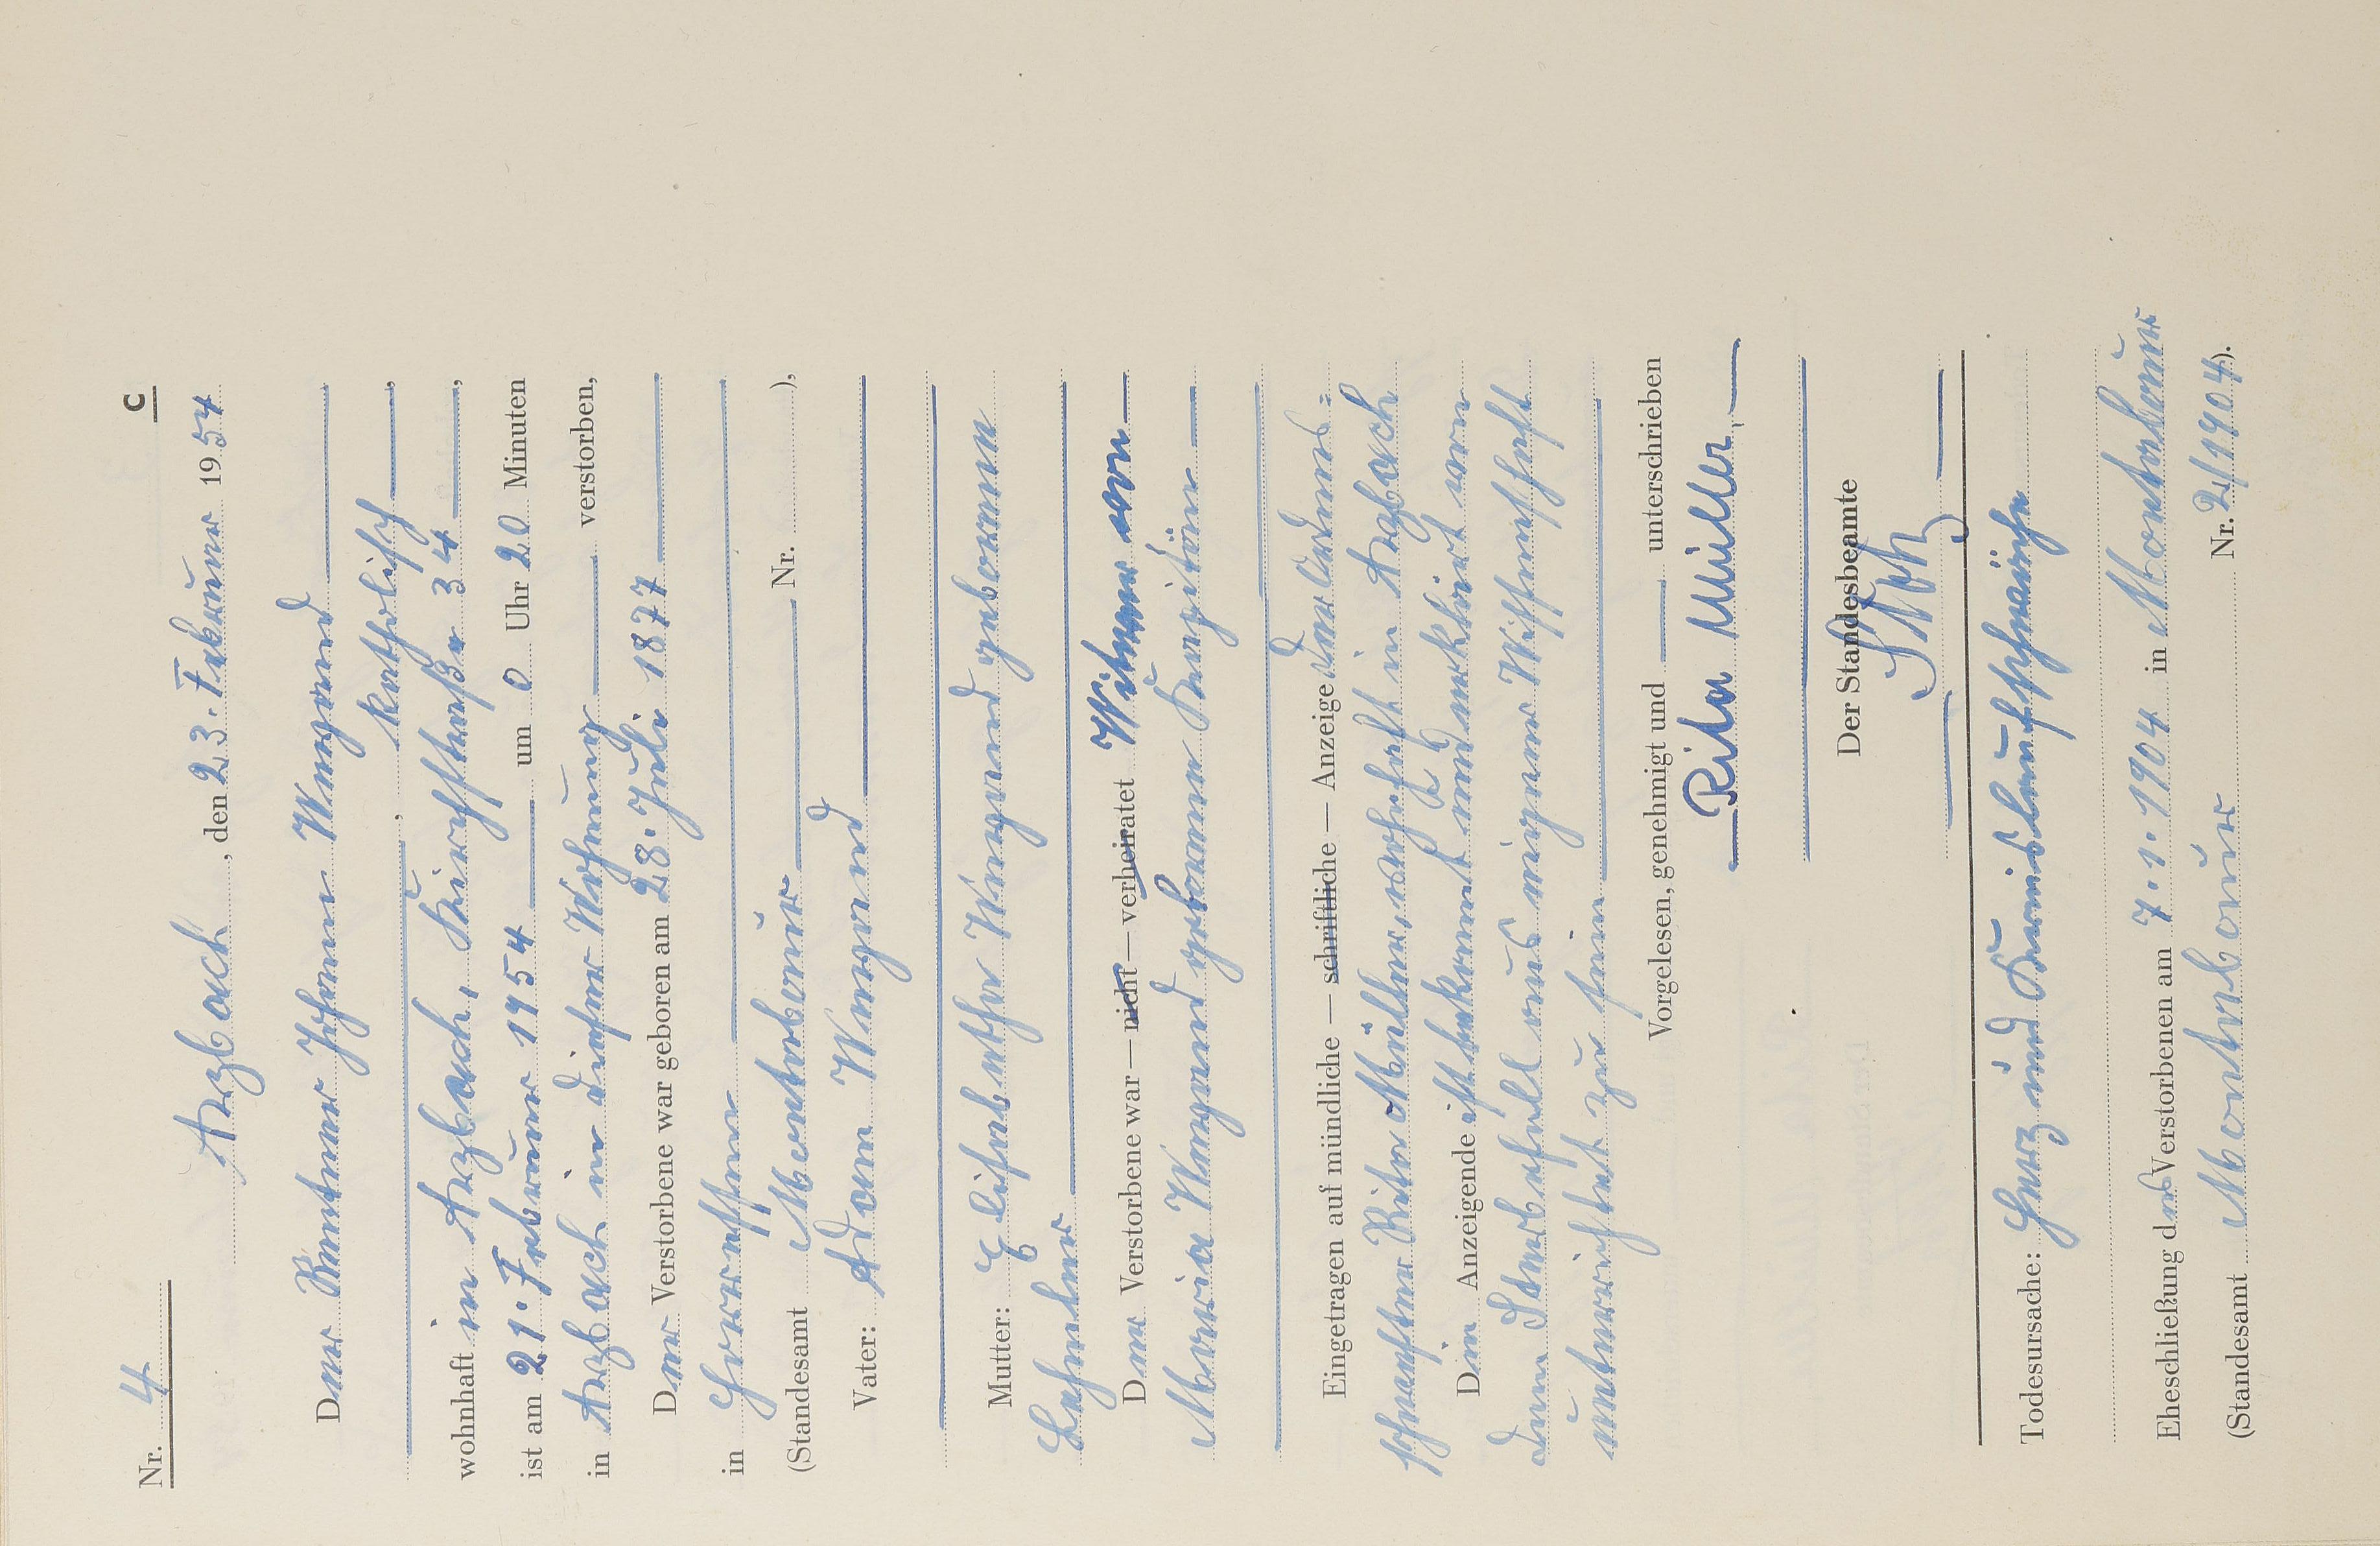 Nr. 4
C
Arzbach, den 23. Februar 1954
Der Rentner Johann Weyand
, katholisch,
wohnhaft in Arzbach, Kirchstraße 34,
ist am 21. Februar 1954 um 0 Uhr 20 Minuten
in Arzbach in dieser Wohnung verstorben,
Der Verstorbene war geboren am 28. Juli 1877
in
(Standesamt Montabaur Nr. ),
Vater: Adam Weyand
Mutter: Elisabetha Weyand geborene
Der Verstorbene war — nicht — verheiratet Witwer von
Maria Weyand geborene
Eingetragen auf mündliche — schriftliche — Anzeige der Ordens=
schwester Rita Müller, wohnhaft in Arzbach
Die Anzeigende ist bekannt und erklärt von
dem Sterbefall aus eigener Wissenschaft
unterrichtet zu sein
Vorgelesen, genehmigt und unterschrieben
Rita Müller
Der Standesbeamte
Todesursache: Herz und Kreislaufschwäche
Eheschließung des Verstorbenen am 7.1.1904 in Montabaur
(Standesamt Montabaur Nr. 2/1904).